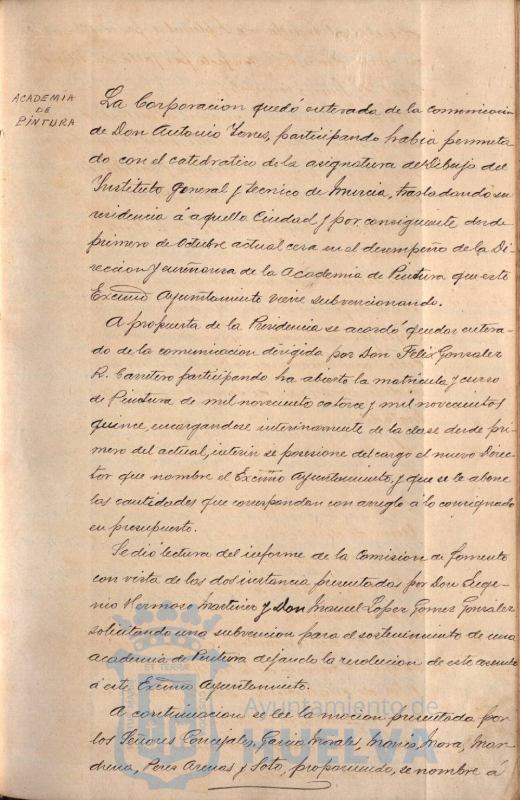 ACADEMIA
DE
PINTURA
La Corporacion quedó enterada de la comunicacion
de Don Antonio Torres, participando habia permuta-
do con el catedratico de la asignatura de Dibujo del
Instituto general y tecnico de Murcia, trasladando su
residencia á aquella Ciudad y por consiguiente desde
primero de Octubre actual cesa en el desempeño de la Di-
reccion y enseñanza de la Academia de Pintura que este
Excmo Ayuntamiento viene subvencionando.
A propuesta de la Presidencia se acordó quedar entera-
do de la comunicacion dirigida por Don Felix Gonzalez
R. Carretero participando ha abierto la matricula y curso
de Pintura de mil novecientos catorce y mil novecientos
quince, encargandose interinamente de la clase desde pri-
mero del actual, interin se posesione del cargo el nuevo Direc-
tor que nombre el Excmo Ayuntamiento, y que se le abone
las cantidades que correspondan con arreglo á lo consignado
en presupuesto.
Se dio lectura del informe de la Comision de fomento
con vista de las dos instancia presentadas por Don Euge-
nio Hermoso Martinez y Don Manuel Lopez Gomez Gonzalez
solicitando una subvencion para el sostenimiento de una
academia de Pintura dejando la resolucion de este asunto
á este Excmo Ayuntamiento.
A continuacion se lee la mocion presentada por
los Señores Concejales, Garcia Morales, Mora, Mar-
chena, Peres Arenas y Soto, proponiendo, se nombre á
Ayuntamiento de
HUELVA